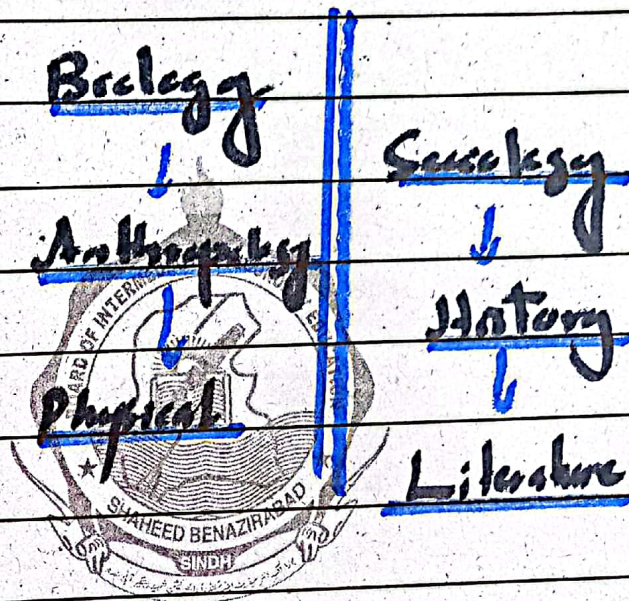 Biology
↓
Anthropology
↓
Physical
Sociology
↓
History
↓
Literature
BOARD OF INTERMEDIATE
SHAHEED BENAZIRABAD
SINDH